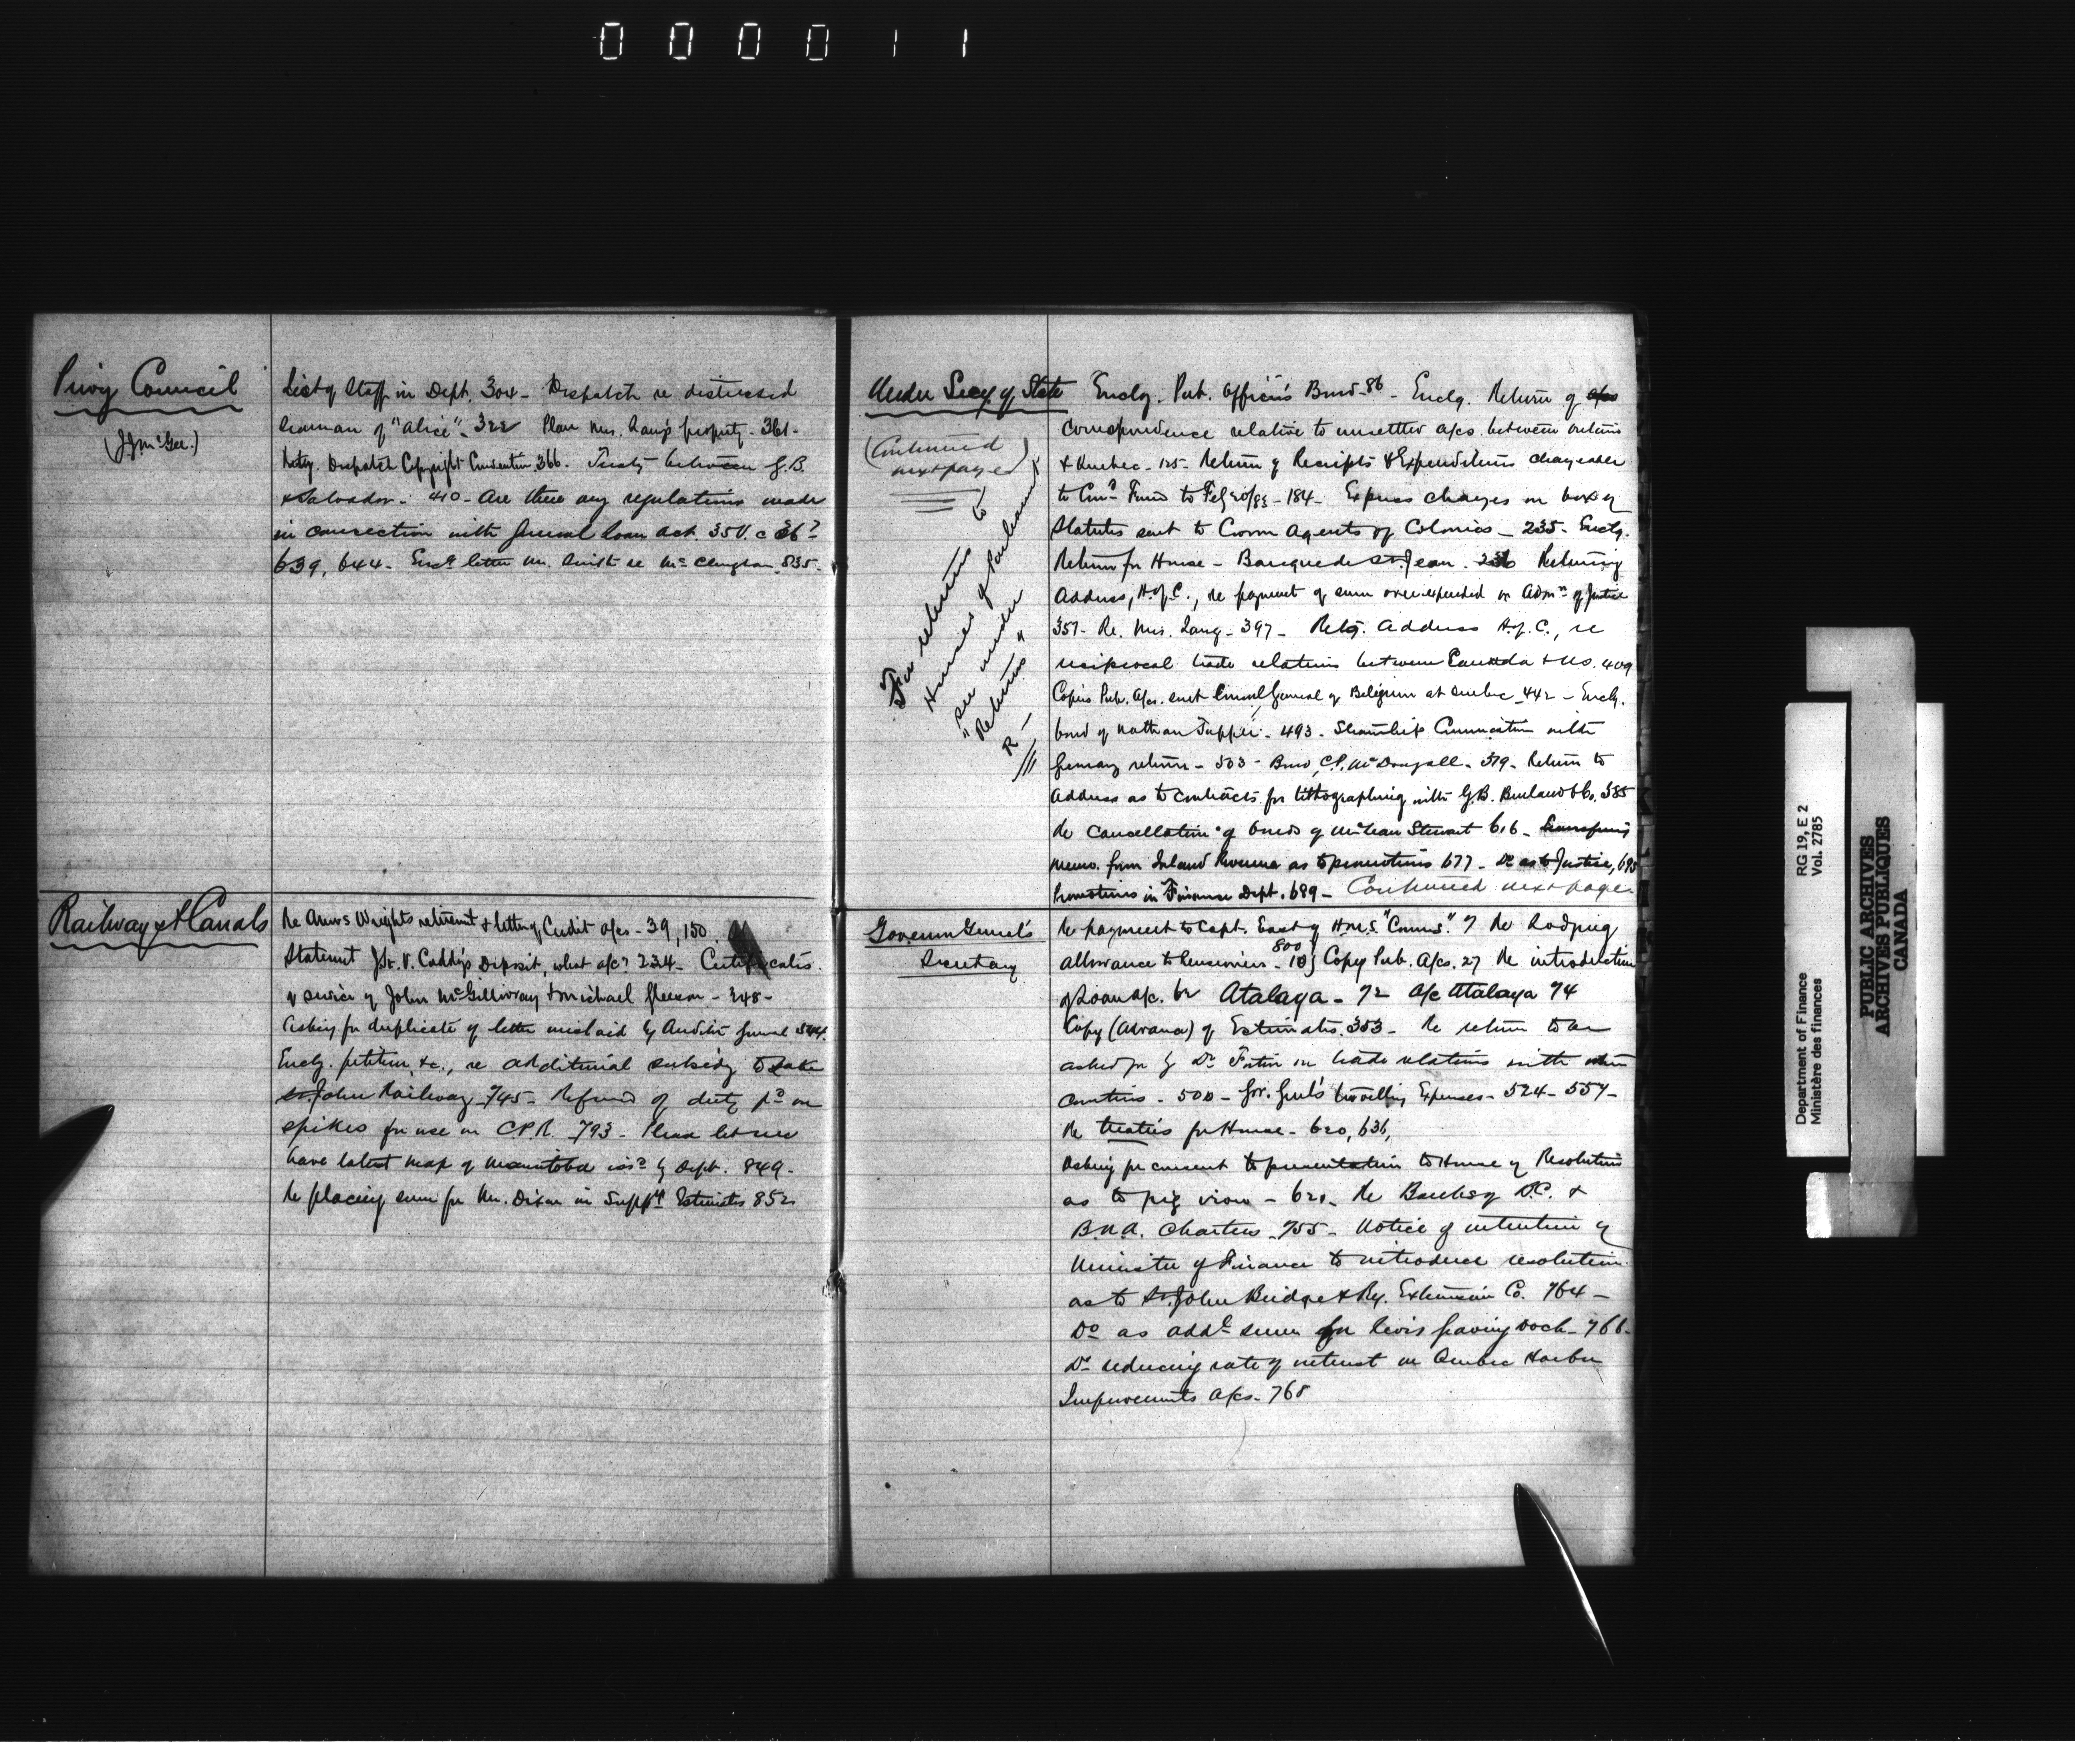 000011
Privy Council
(J.J. McGee.)
List of Staff in Dept. 304 - Dispatch re distressed
seaman of "Alice" - 322 Plan Mrs. Lang's property - 361 -
Retg. Dispatch Copyright Convention 366. Treaty between G.B.
& Salvador - 410 - Are there any regulations made
in connection with general loan act. 35 V. c 36?
639, 644 - Encg letter Mr. Smith re Mc Clenaghan 835 -
Railway & Canals
Re Anws Wright's retirement & letter of Credit a/cs - 39, 150.
Statement Jn. V. Caddy's Deposit, what a/c? 234 - Certificates
of service of John McGillivray & Michael Gleeson - 348 -
Asking for duplicate of letter mislaid by Auditor General 544.
Enclg. petition, &c., re additional subsidy to Lake
St. John Railway - 745 - Refund of duty pd on
spikes for use on C.P.R. - 793 - Please let me
have latest map of Manitoba issd by Dept. 849 -
Re placing sum for Mr. Dixon in Supply Estimates 852
Under Secy of State
(Continued
next page)
For returns to
Houses of Parliament
see under
"Returns"
R -
Enclg. Pub. Officers Bond - 86 - Enclg. Return of
correspondence relative to unsettled a/cs. between Ontario
& Quebec - 125 - Return of Receipts & Expenditures chargeable
to Cons Fund to Feb 20/83 - 184 - Express charges on box of
Statutes sent to Crown Agents of Colonies - 235 - Enclg.
Return for House - Banque de St. Jean - 236 Returning
Address, H. of C., re payment of sum over-expended on Admn of Justice
357 - Re. Mrs. Lang - 397 - Retg. Address H. of C., re
reciprocal trade relations between Canada & U.S. 409
Copies Pub. A/cs. sent Consul General of Belgium at Quebec - 442 - Enclg.
bond of Nathan Tupper - 493 - Steamship Communication with
Germany return - 503 - Bond, C.P. McDougall - 379 - Return to
Address as to contracts for lithographing with G.B. Burland & Co. 385
Re Cancellation of bonds of McLean Stewart 616 -
memo. from Inland Revenue as to promotions 677 - Do as to Justice, 695
Promotions in Finance Dept. 689 - Continued next page
Governor General's
Secretary
Re payment to Capt. East of H.M.S. "Comus" 7 Re Lodging
allowance to Pensioners - 18, 800 } Copy Pub. A/cs. 27 Re introduction
of Loan a/c. 62 Atalaya - 72 A/c Atalaya 74
Copy (Advance) of Estimates. 353 - Re return to be
asked for by Dr Fortin on trade relations with other
Countries - 500 - Gov. Genl's travelling Expenses - 524 - 557 -
Re treaties for House - 620, 636,
Asking for consent to presentation to House of Resolution
as to pig iron - 621 - Re Banks of B.C. &
B.N.A. Charters - 755 - Notice of intention of
Minister of Finance to introduce resolution
as to St. John Bridge & Ry. Extension Co. 764 -
Do as addl sum for Levis graving dock - 766 -
Do reducing rate of interest on Quebec Harbor
Improvements A/cs - 768
Department of Finance
Ministère des finances
RG 19, E 2
Vol. 2785
PUBLIC ARCHIVES
ARCHIVES PUBLIQUES
CANADA